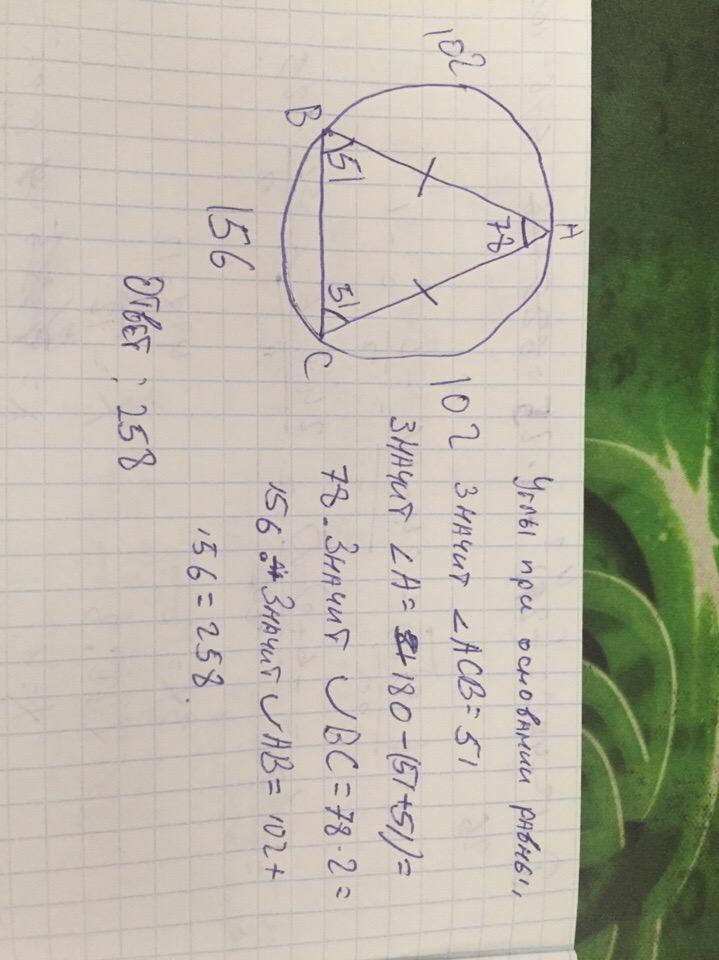 102
B
A
51
78
51
C
156
102
Углы при основании равны,
значит ∠ACB = 51
значит ∠A = 180 - (51+51) =
78. Значит ◡BC = 78 · 2 =
156. Значит ◡AB = 102 +
156 = 258.
Ответ: 258